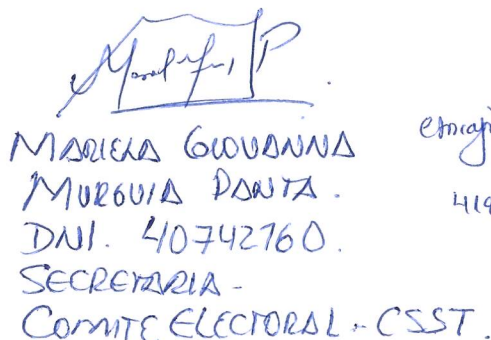 MARIELA GIOVANNA
MURGUIA PANTA.
DNI. 40742760.
SECRETARIA -
COMITE ELECTORAL - CSST.
419